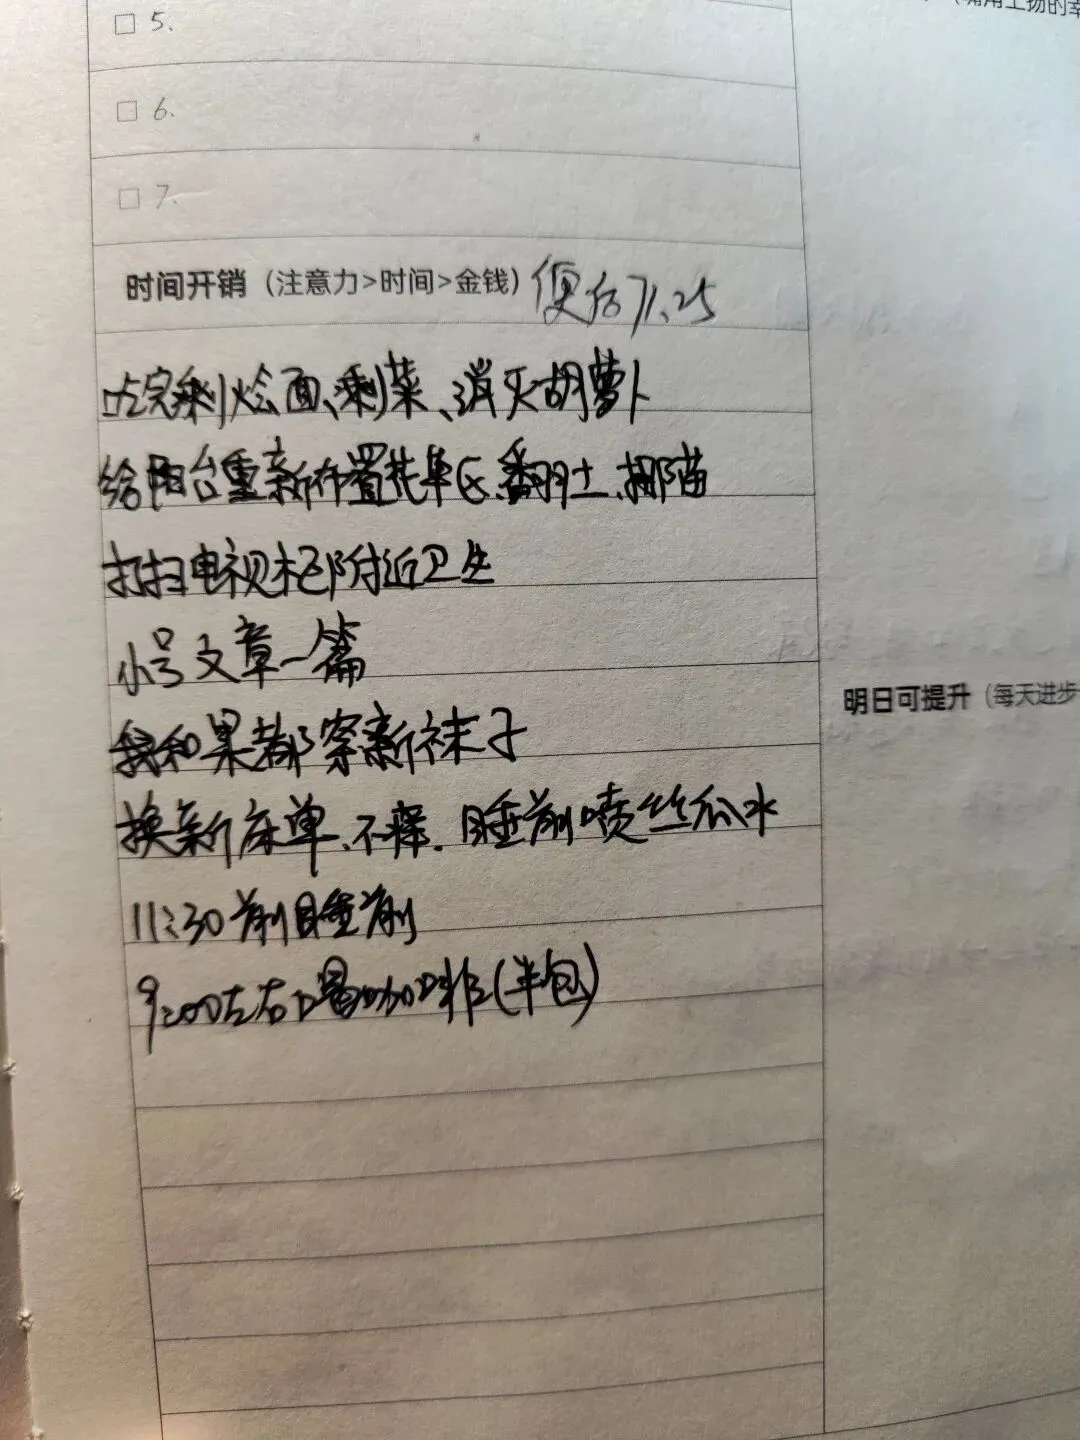 (嘴角上扬的幸
□ 5.
□ 6.
□ 7.
时间开销(注意力>时间>金钱)便后71.25
吃完剩烩面、剩菜、消灭胡萝卜
给阳台重新布置花草区、翻土、挪苗
打扫电视柜附近卫生
小号文章一篇
明日可提升(每天进步
我和果都穿新袜子
换新床单、不痒.睡前喷丝瓜水
11:30前睡前
9:00左右喝咖啡(半包)